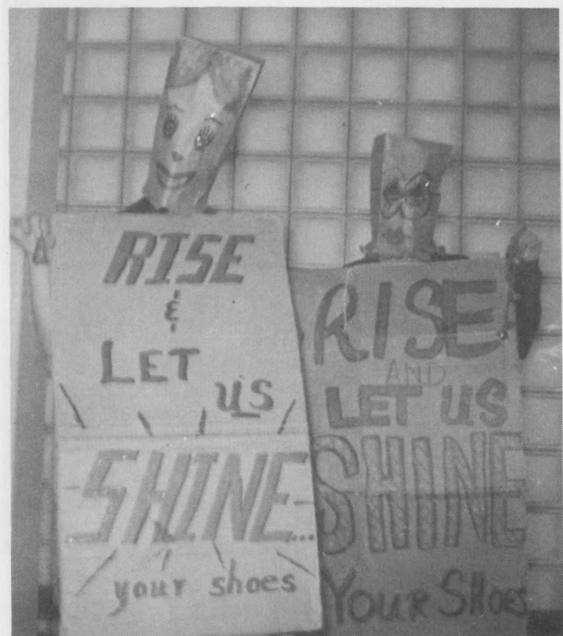 RISE
&
LET
us
SHINE...
your shoes
RISE
AND
LET US
SHINE
YOUR SHOES